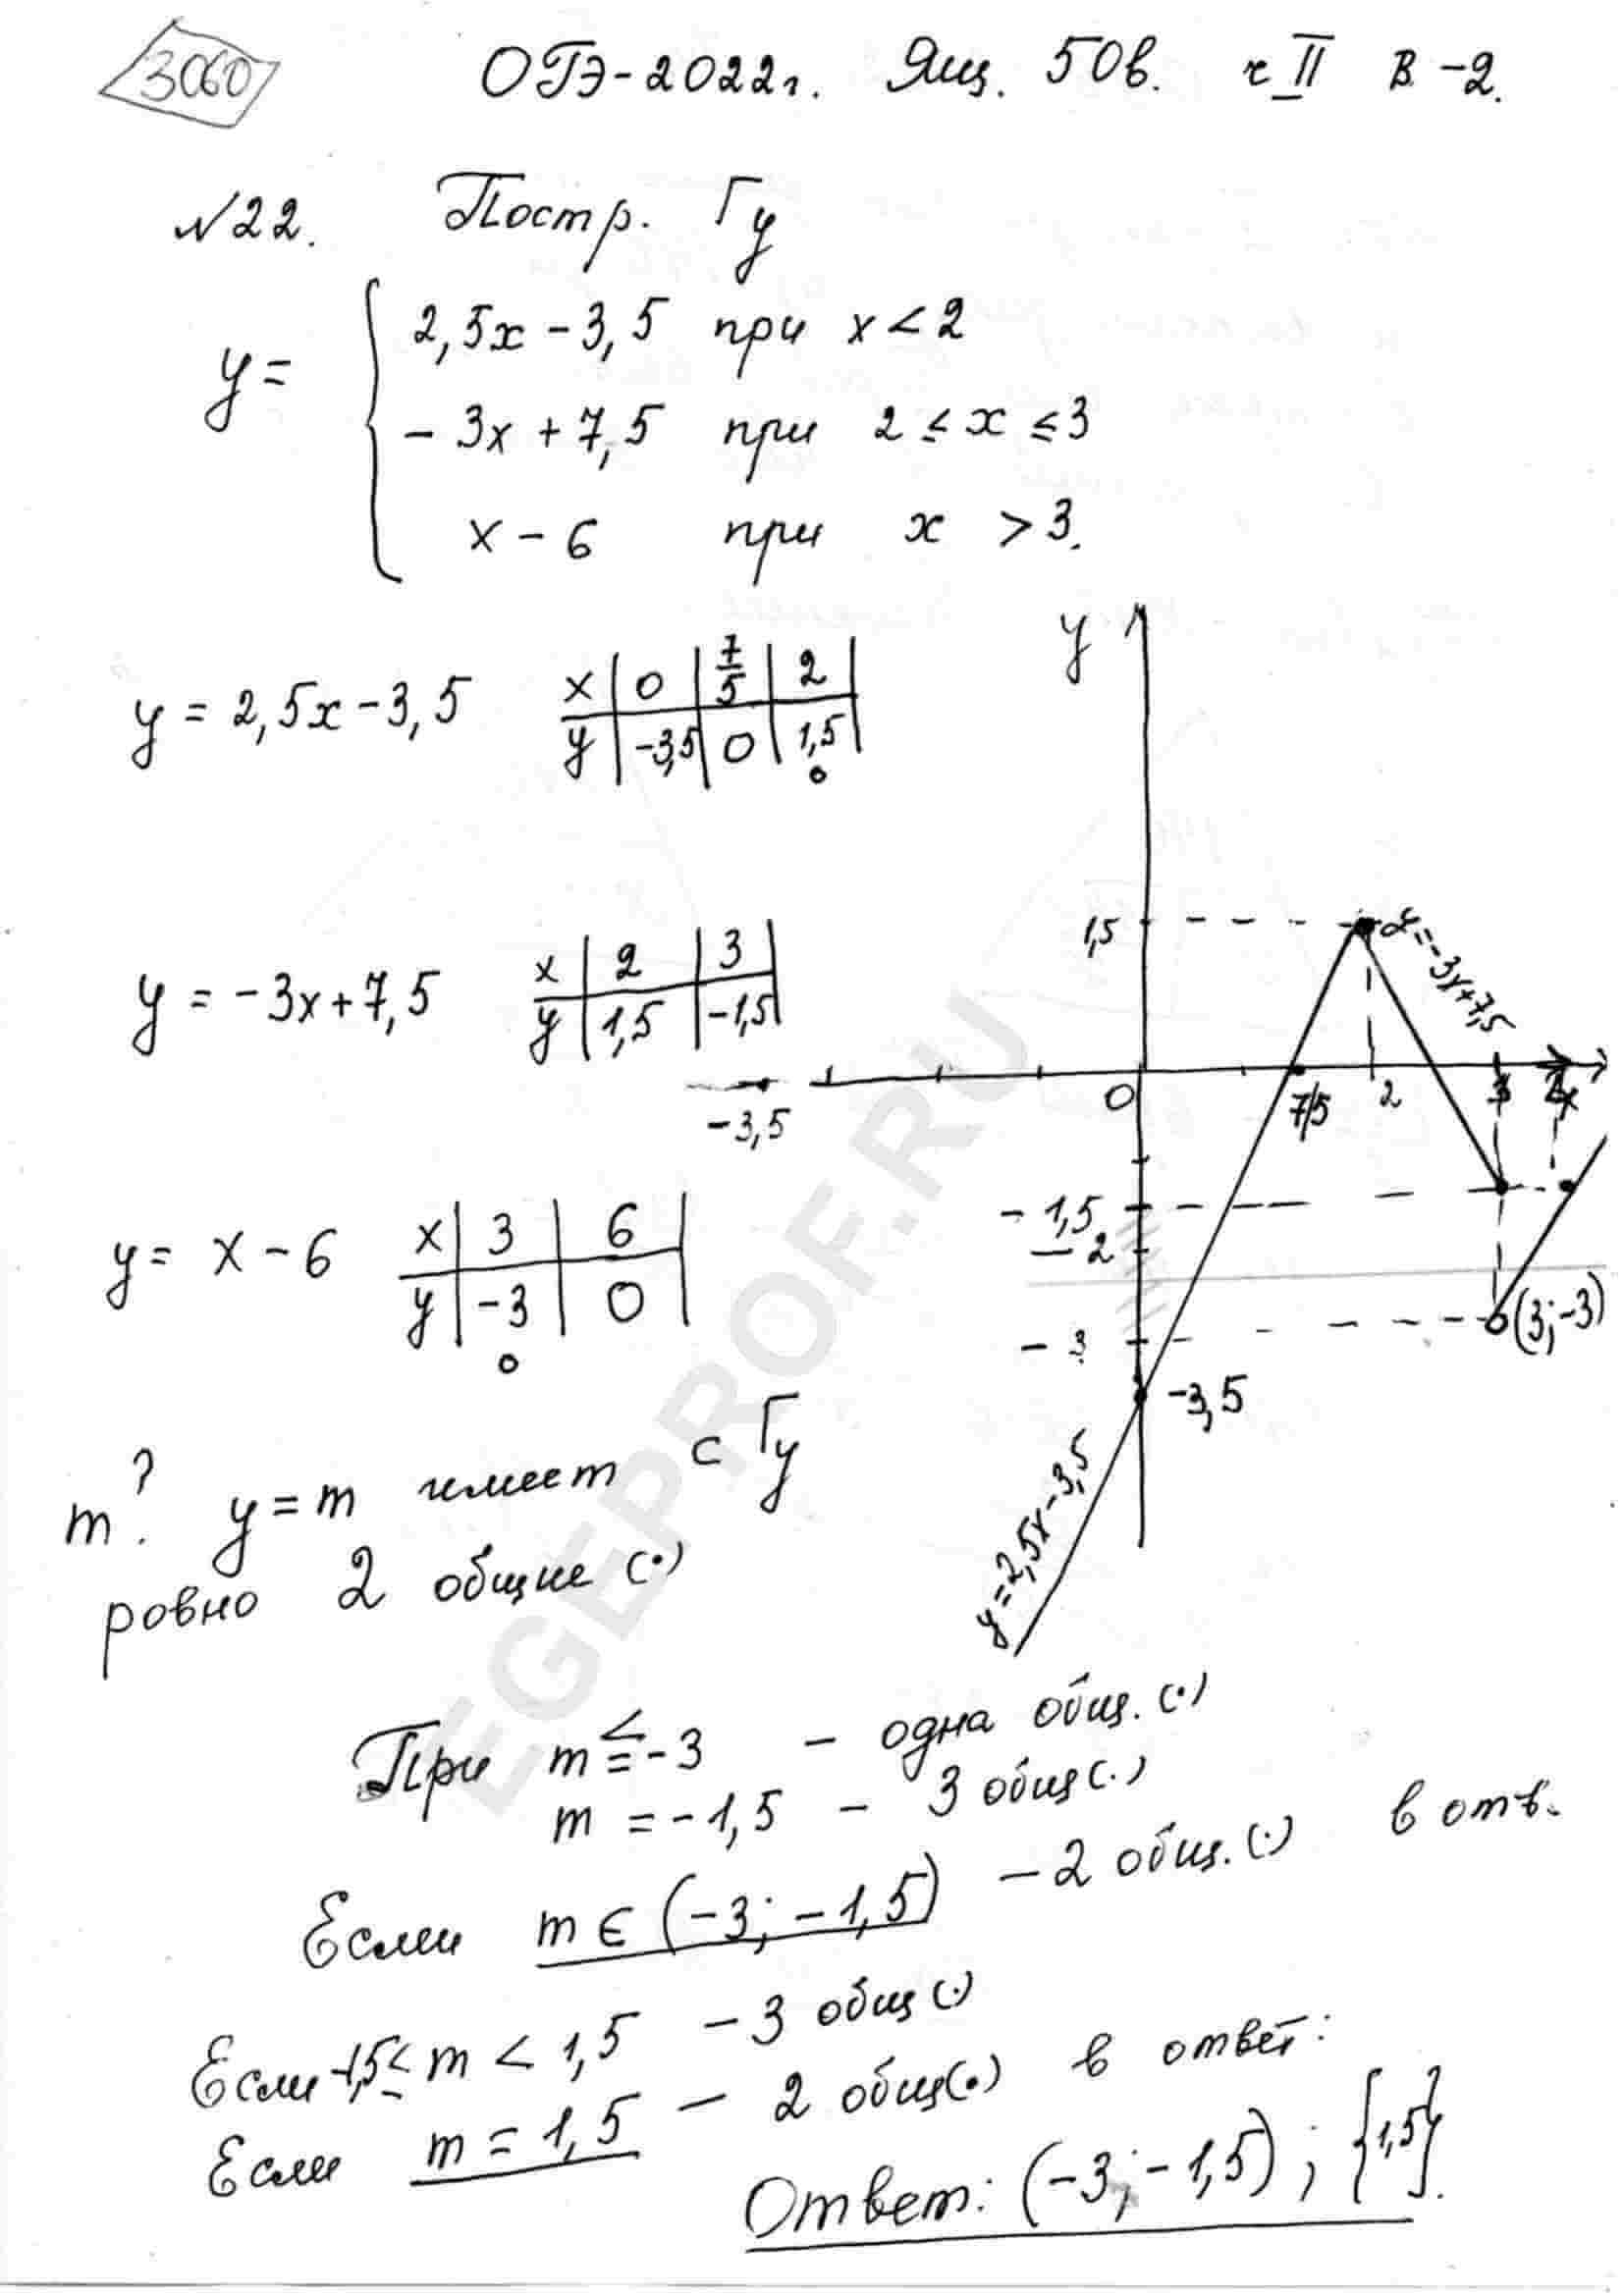 3060
ОГЭ-2022г. Ящ. 50в. ч II В-2.
№22. Постр. Гу
y = { 2,5x - 3,5 при x < 2
- 3x + 7,5 при 2 ≤ x ≤ 3
x - 6 при x > 3.
y = 2,5x - 3,5
x | 0 | 7/5 | 2
y | -3,5 | 0 | 1,5
y = -3x + 7,5
x | 2 | 3
y | 1,5 | -1,5
-3,5
y = x - 6
x | 3 | 6
y | -3 | 0
y
1,5
y = -3x + 7,5
0
7/5
2
3
x
- 1,5
- 2
- 3
(3; -3)
-3,5
y = 2,5x - 3,5
m? y = m имеет с Гу
ровно 2 общие (•)
При m ≤ -3 - одна общ. (•)
m = -1,5 - 3 общ(.)
Если m ∈ (-3; -1,5) - 2 общ. (•) в отв.
Если -1,5 ≤ m < 1,5 - 3 общ (•)
Если m = 1,5 - 2 общ(•) в ответ:
Ответ: (-3; -1,5) ; {1,5}.
EGEPROF.RU